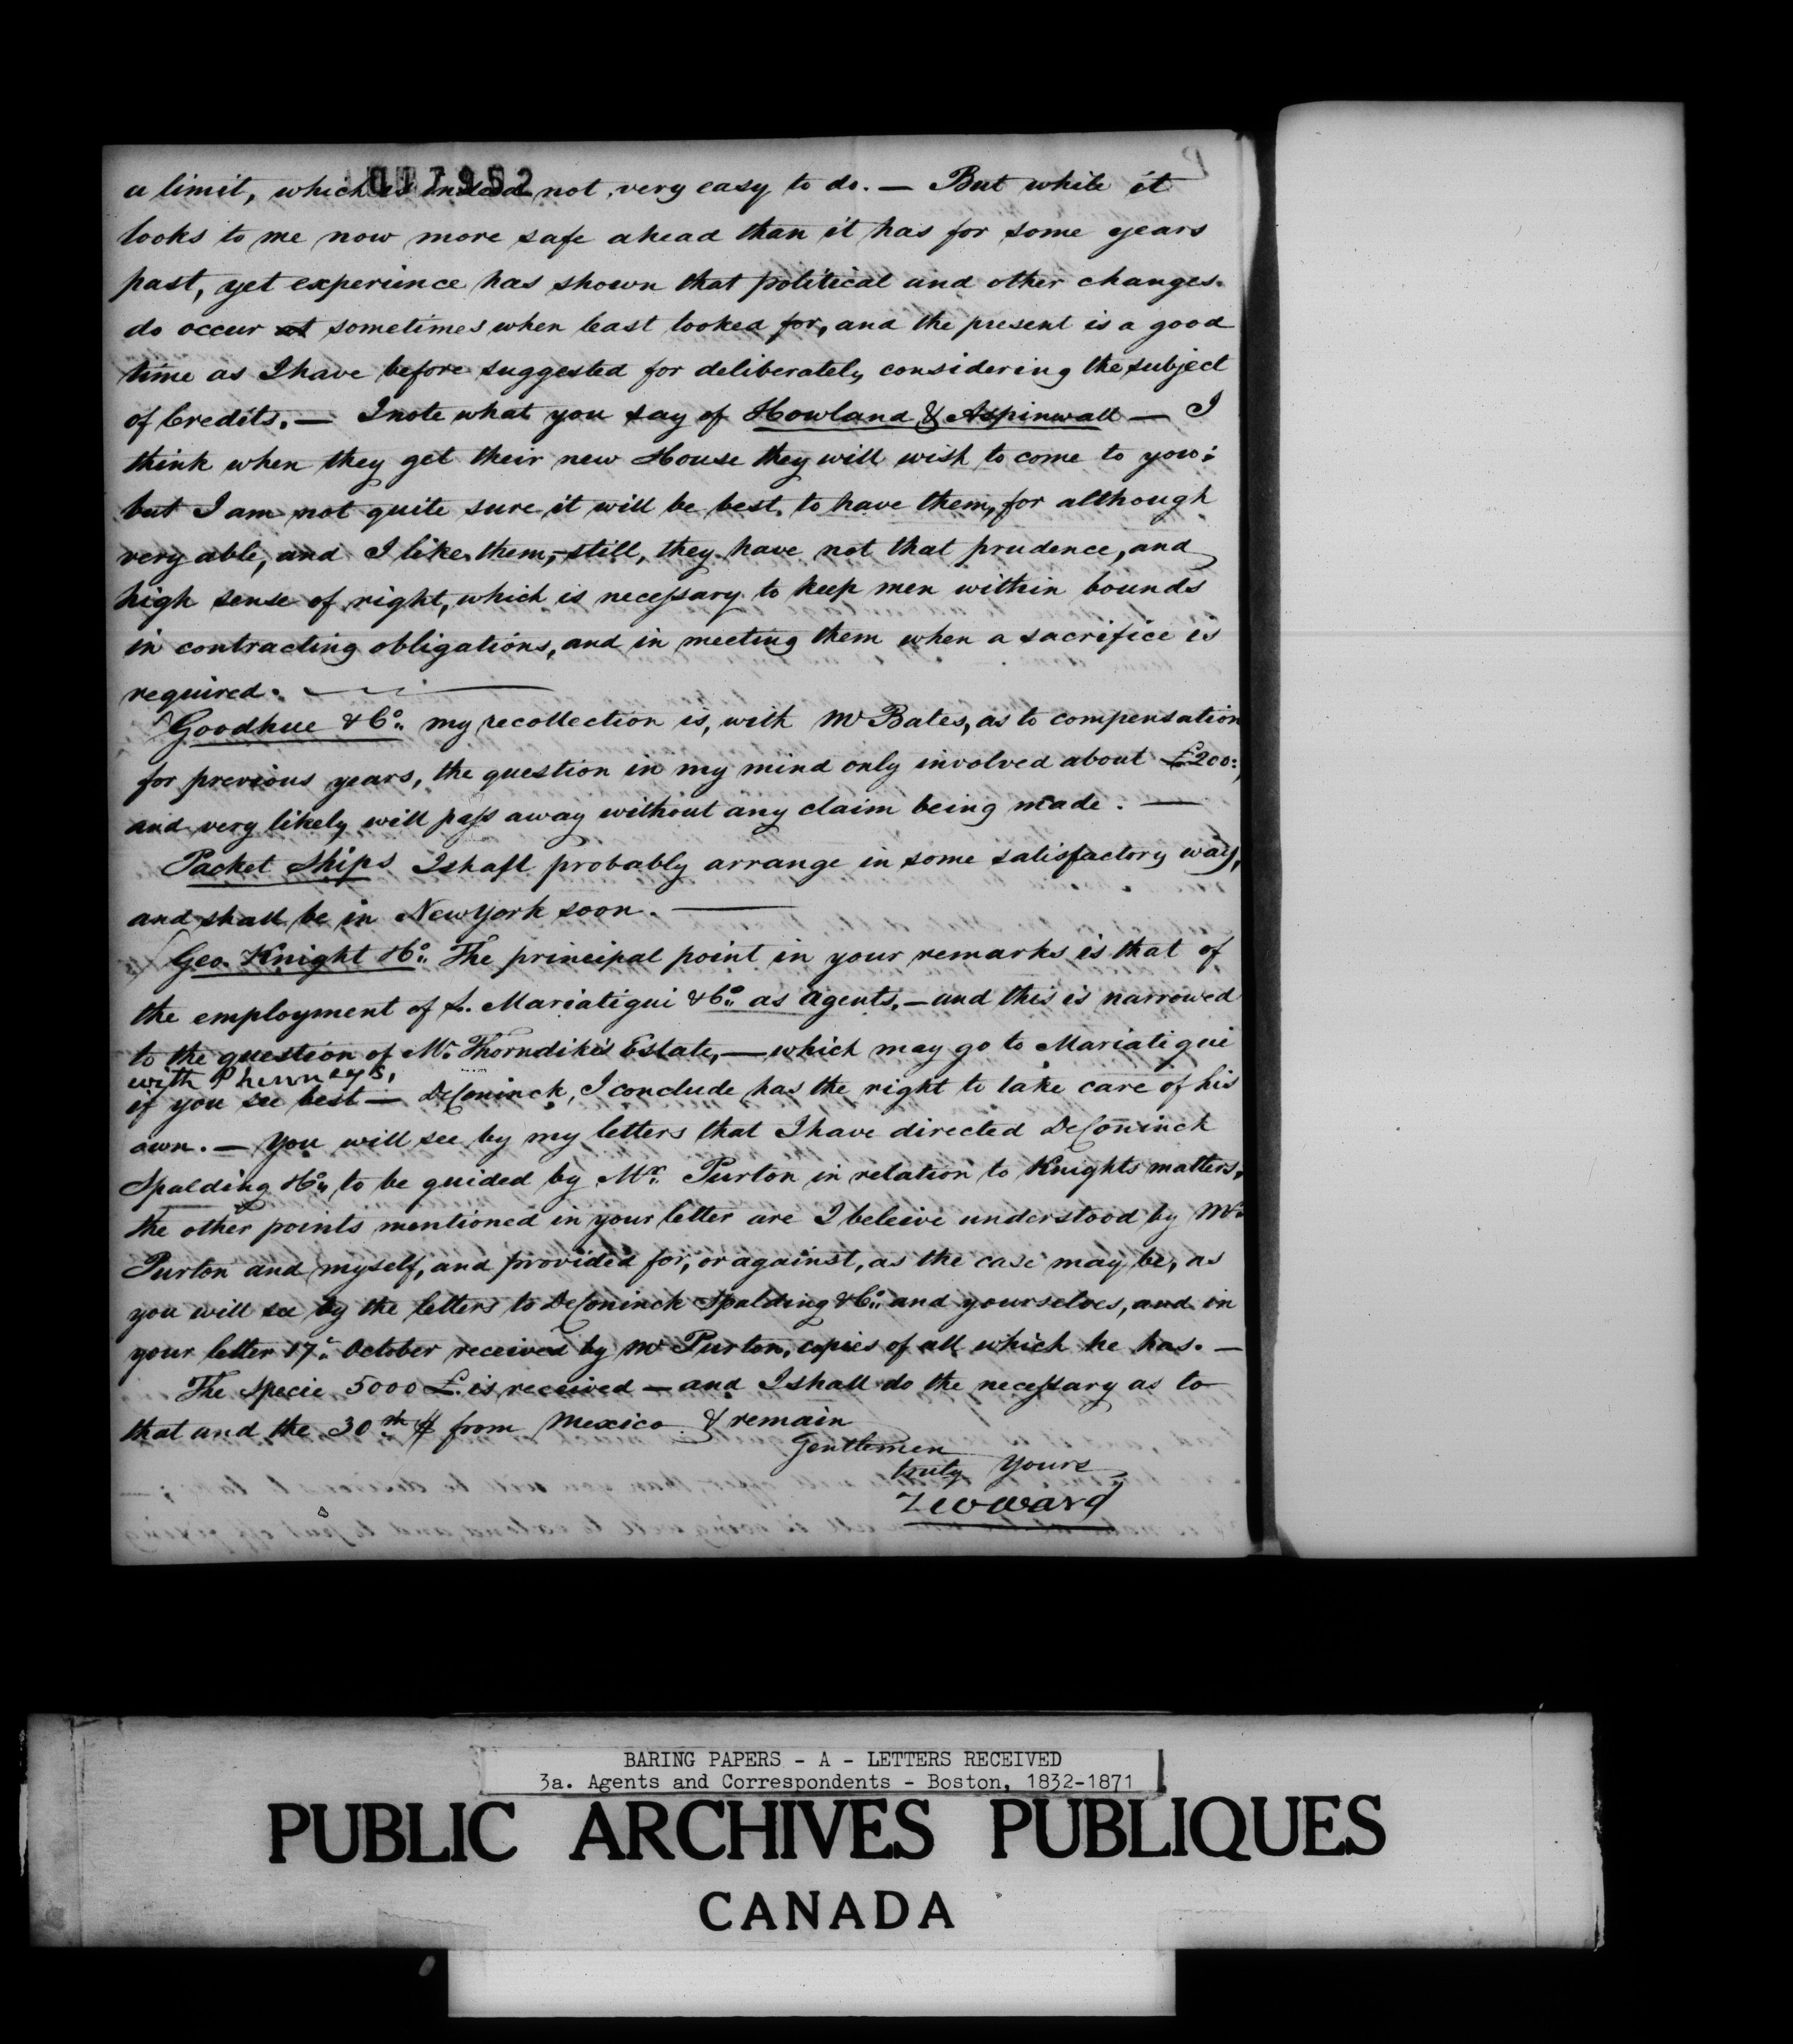 017952
a limit, which is indeed not very easy to do. — But while it
looks to me now more safe ahead than it has for some years
past, yet experience has shown that political and other changes.
do occur at sometimes when least looked for, and the present is a good
time as I have before suggested for deliberately considering the subject
of Credits. — I note what you say of Howland & Aspinwall — I
think when they get their new House they will wish to come to you;
but I am not quite sure it will be best to have them, for although
very able, and I like them, – still, they have not that prudence, and
high sense of right, which is necessary to keep men within bounds
in contracting obligations, and in meeting them when a sacrifice is
required. —
Goodhue & Co. my recollection is, with Mr Bates, as to compensation
for previous years, the question in my mind only involved about £200:,
and very likely will pass away without any claim being made. —
Packet Ships I shall probably arrange in some satisfactory way,
and shall be in New York soon. —
Geo. Knight & Co. The principal point in your remarks is that of
the employment of L. Mariatigui & Co. as agents, – and this is narrowed
to the question of Mr. Thorndike's Estate, — which may go to Mariatigui
with Phinneys,
if you see best — DeConinck, I conclude has the right to take care of his
own. — You will see by my letters that I have directed DeConinck
Spalding & Co. to be guided by Mr. Purton in relation to Knights matters,
the other points mentioned in your letter are I beleive understood by Mr.
Purton and myself, and provided for, or against, as the case may be, as
you will see by the letters to DeConinck Spalding & Co. and yourselves, and in
your letter 17. October received by Mr Purton, copies of all which he has. —
The Specie 5000 £. is received — and I shall do the necessary as to
that and the 30 m $ from Mexico & remain
Gentlemen
truly Yours
T W Ward
BARING PAPERS - A - LETTERS RECEIVED
3a. Agents and Correspondents - Boston, 1832-1871
PUBLIC ARCHIVES PUBLIQUES
CANADA